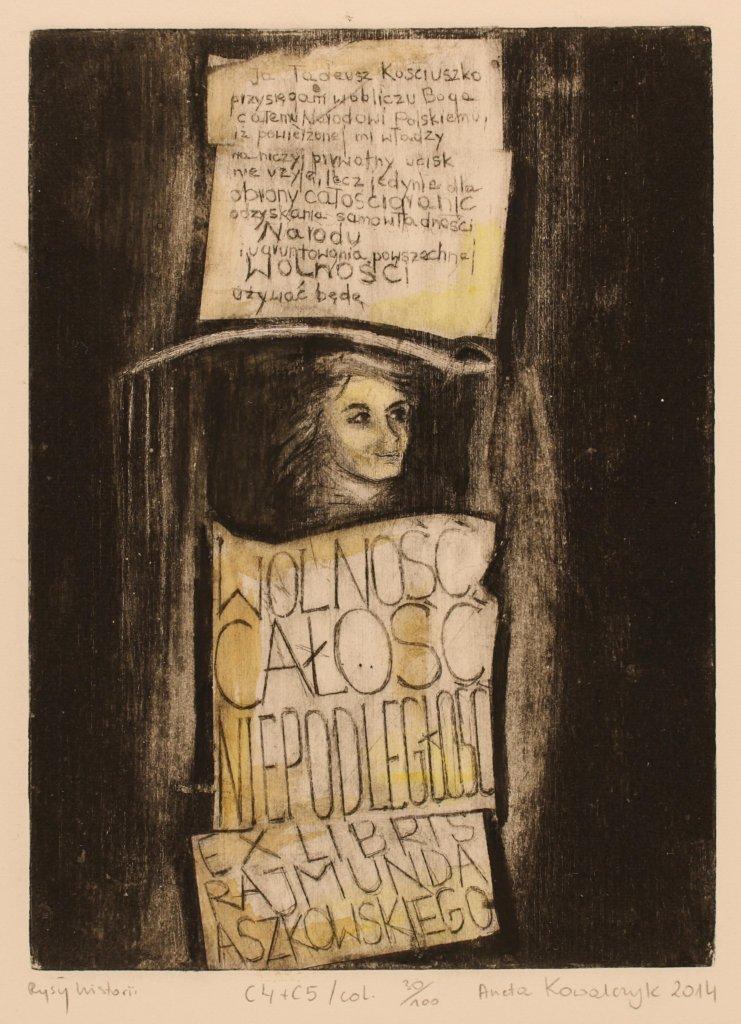 Ja, Tadeusz Kościuszko
przysięgam w obliczu Boga
całemu Narodowi Polskiemu,
iż powierzonej mi władzy
na niczyj prywatny ucisk
nie użyję, lecz jedynie dla
obrony całości granic
odzyskania samowładności
Narodu
i ugruntowania powszechnej
Wolności
używać będę
WOLNOŚĆ,
CAŁOŚĆ,
NIEPODLEGŁOŚĆ
EX LIBRIS
RAJMUNDA
ASZKOWSKIEGO
Rysy historii C4+C5/col. 30/100 Aneta Kowalczyk 2014